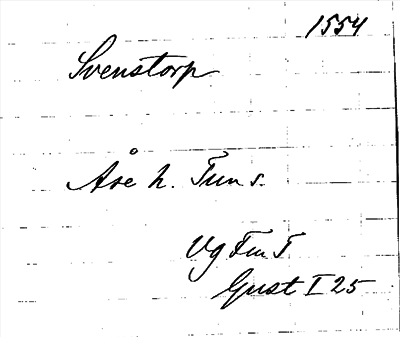 1554
Svenstorp
Åse h. Tun s.
Vg Fm T
Gust I 25